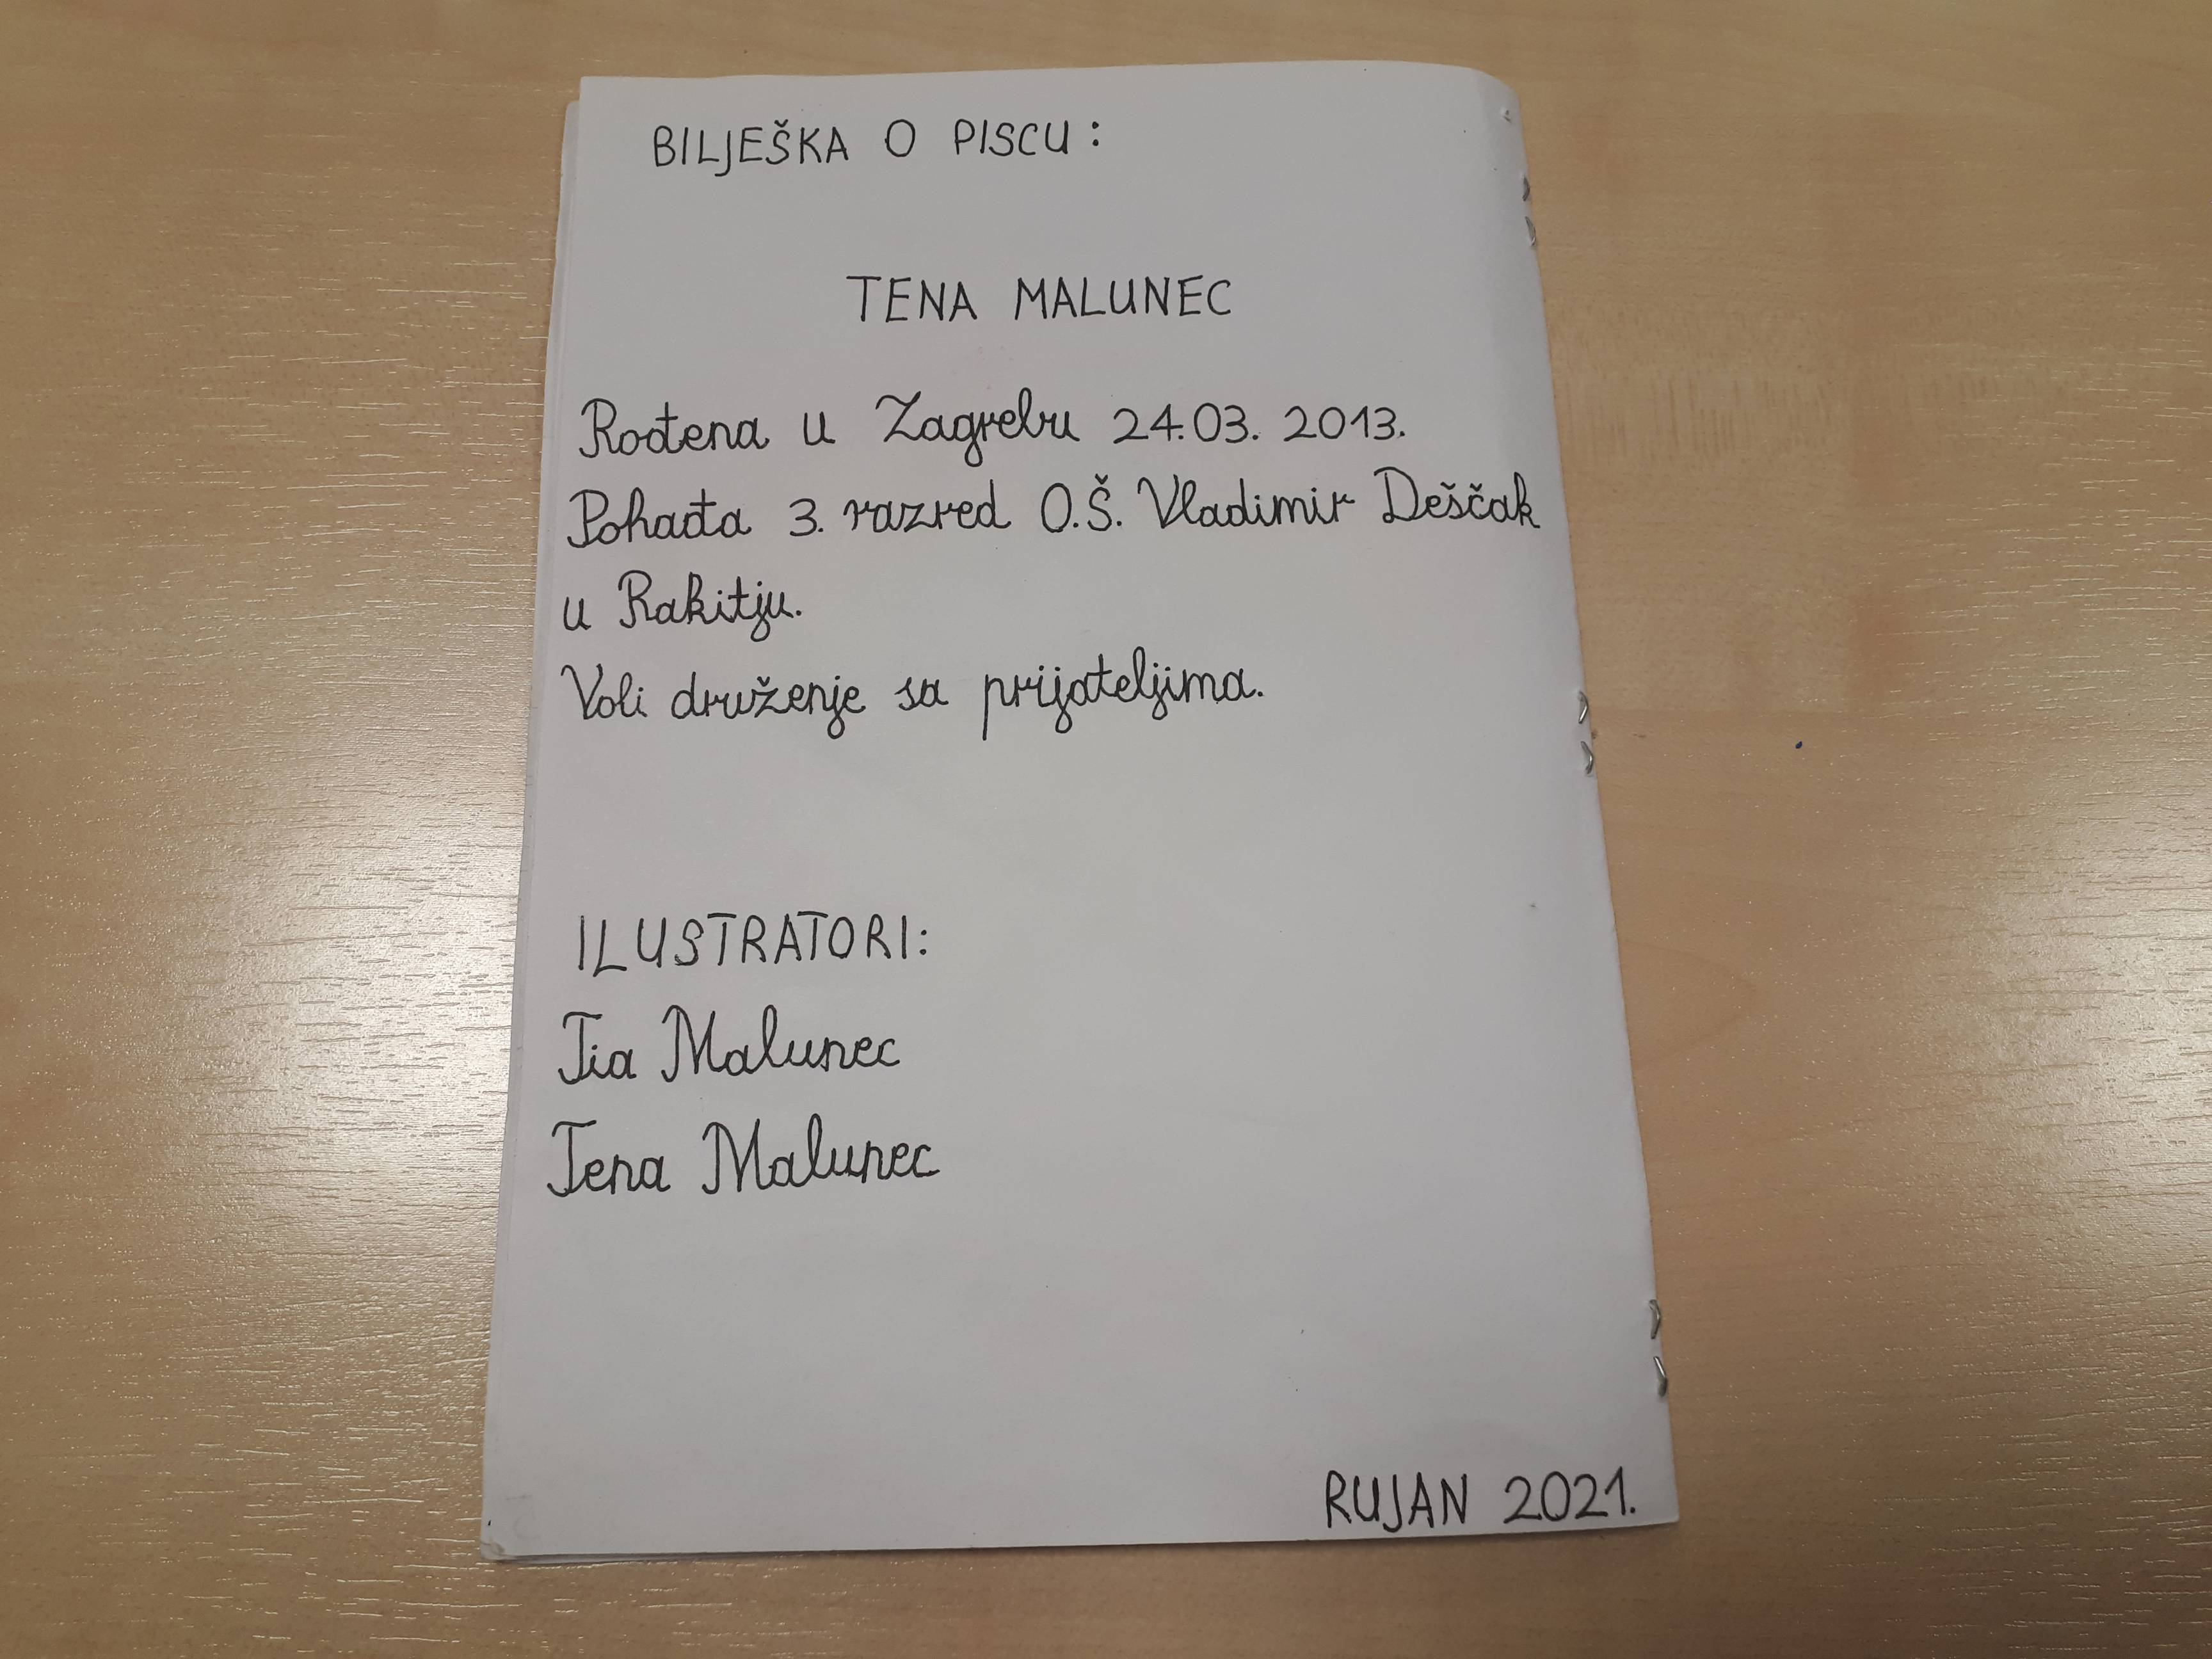 BILJEŠKA O PISCU:
TENA MALUNEC
Rođena u Zagrebu 24.03. 2013.
Pohađa 3. razred O.Š. Vladimir Deščak
u Rakitju.
Voli druženje sa prijateljima.
ILUSTRATORI:
Tia Malunec
Tena Malunec
RUJAN 2021.